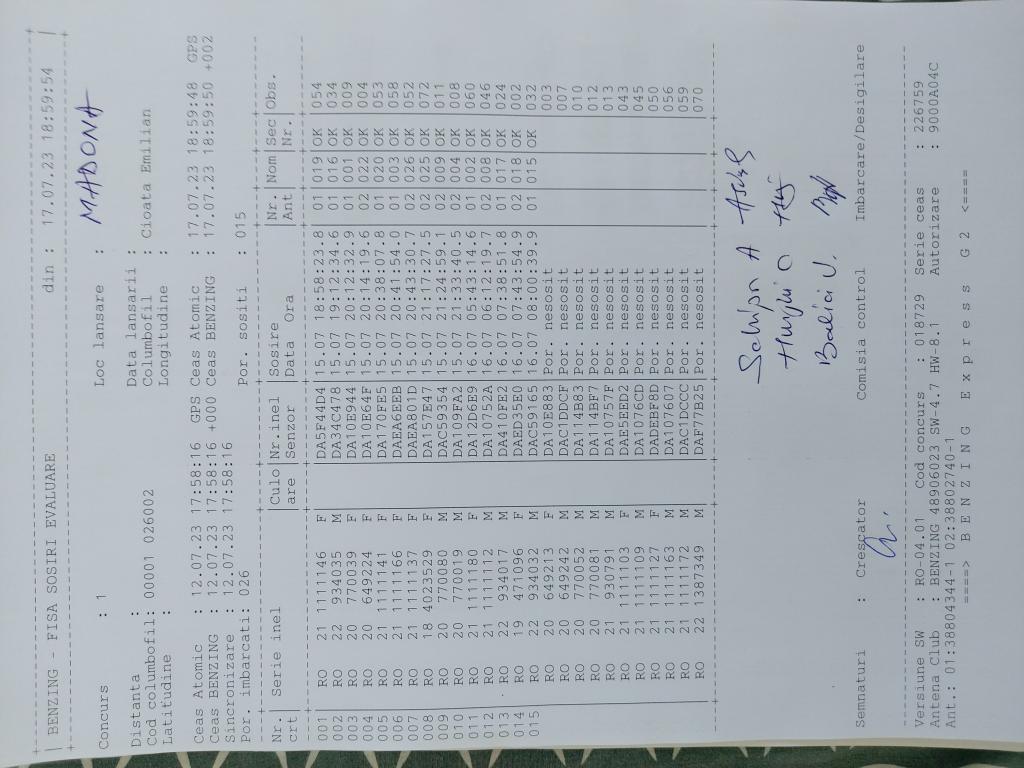 BENZING - FISA SOSIRI EVALUARE din : 17.07.23 18:59:54
Concurs : 1 Loc lansare : MADONA
Distanta : Data lansarii :
Cod columbofil: 00001 026002 Columbofil : Cioata Emilian
Latitudine : Longitudine :
Ceas Atomic : 12.07.23 17:58:16 GPS Ceas Atomic : 17.07.23 18:59:48 GPS
Ceas BENZING : 12.07.23 17:58:16 +000 Ceas BENZING : 17.07.23 18:59:50 +002
Sincronizare : 12.07.23 17:58:16
Por. imbarcati: 026 Por. sositi : 015
Nr. | Serie inel |Culo|Nr.inel |Sosire |Nr. |Nom|Sec|Obs.
crt | |are |Senzor |Data Ora |Ant | |Nr.|
001 RO 21 1111146 F DA5F44D4 15.07 18:58:23.8 01 019 OK 054
002 RO 22 934035 M DA34C478 15.07 19:12:34.6 01 016 OK 034
003 RO 20 770039 F DA10E944 15.07 20:12:32.9 01 001 OK 009
004 RO 20 649224 F DA10E64F 15.07 20:14:19.6 02 022 OK 004
005 RO 21 1111141 F DA170FE5 15.07 20:38:07.8 01 020 OK 053
006 RO 21 1111166 F DAEA6EEB 15.07 20:41:54.0 01 003 OK 058
007 RO 21 1111137 F DAEA801D 15.07 20:43:30.7 02 026 OK 052
008 RO 18 4023529 F DA157E47 15.07 21:17:27.5 02 025 OK 072
009 RO 20 770080 M DAC59354 15.07 21:24:59.1 02 009 OK 011
010 RO 20 770019 M DA109FA2 15.07 21:33:40.5 02 004 OK 008
011 RO 21 1111180 F DA12D6E9 16.07 05:43:14.6 01 002 OK 060
012 RO 21 1111112 M DA10752A 16.07 06:12:19.7 02 008 OK 046
013 RO 22 934017 M DA410FE2 16.07 07:38:51.8 01 017 OK 024
014 RO 19 471096 F DAED35E0 16.07 07:43:54.9 02 018 OK 002
015 RO 22 934032 M DAC59165 16.07 08:00:39.9 01 015 OK 032
RO 20 649213 F DA10E883 Por. nesosit 003
RO 20 649242 M DAC1DDCF Por. nesosit 007
RO 20 770052 M DA114B83 Por. nesosit 010
RO 20 770081 M DA114BF7 Por. nesosit 012
RO 21 930791 M DA10757F Por. nesosit 013
RO 21 1111103 F DAE5EED2 Por. nesosit 043
RO 21 1111109 M DA1076CD Por. nesosit 045
RO 21 1111127 F DADEBF8D Por. nesosit 050
RO 21 1111163 M DA107607 Por. nesosit 056
RO 21 1111172 M DAC1DCCC Por. nesosit 059
RO 22 1387349 M DAF77B25 Por. nesosit 070
Semnaturi : Crescator Comisia control Imbarcare/Desigilare
Versiune SW : RO-04.01 Cod concurs : 018729 Serie ceas : 226759
Antena Club : BENZING 48906023 SW-4.7 HW-8.1 Autorizare : 9000A04C
Ant.: 01:38804344-1 02:38802740-1
====> B E N Z I N G E x p r e s s G 2 <====